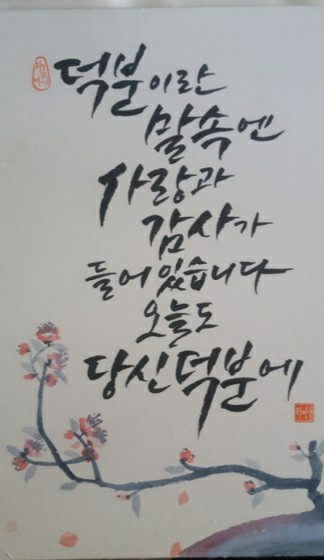 덕분이란
말속엔
사랑과
감사가
들어있습니다
오늘도
당신덕분에